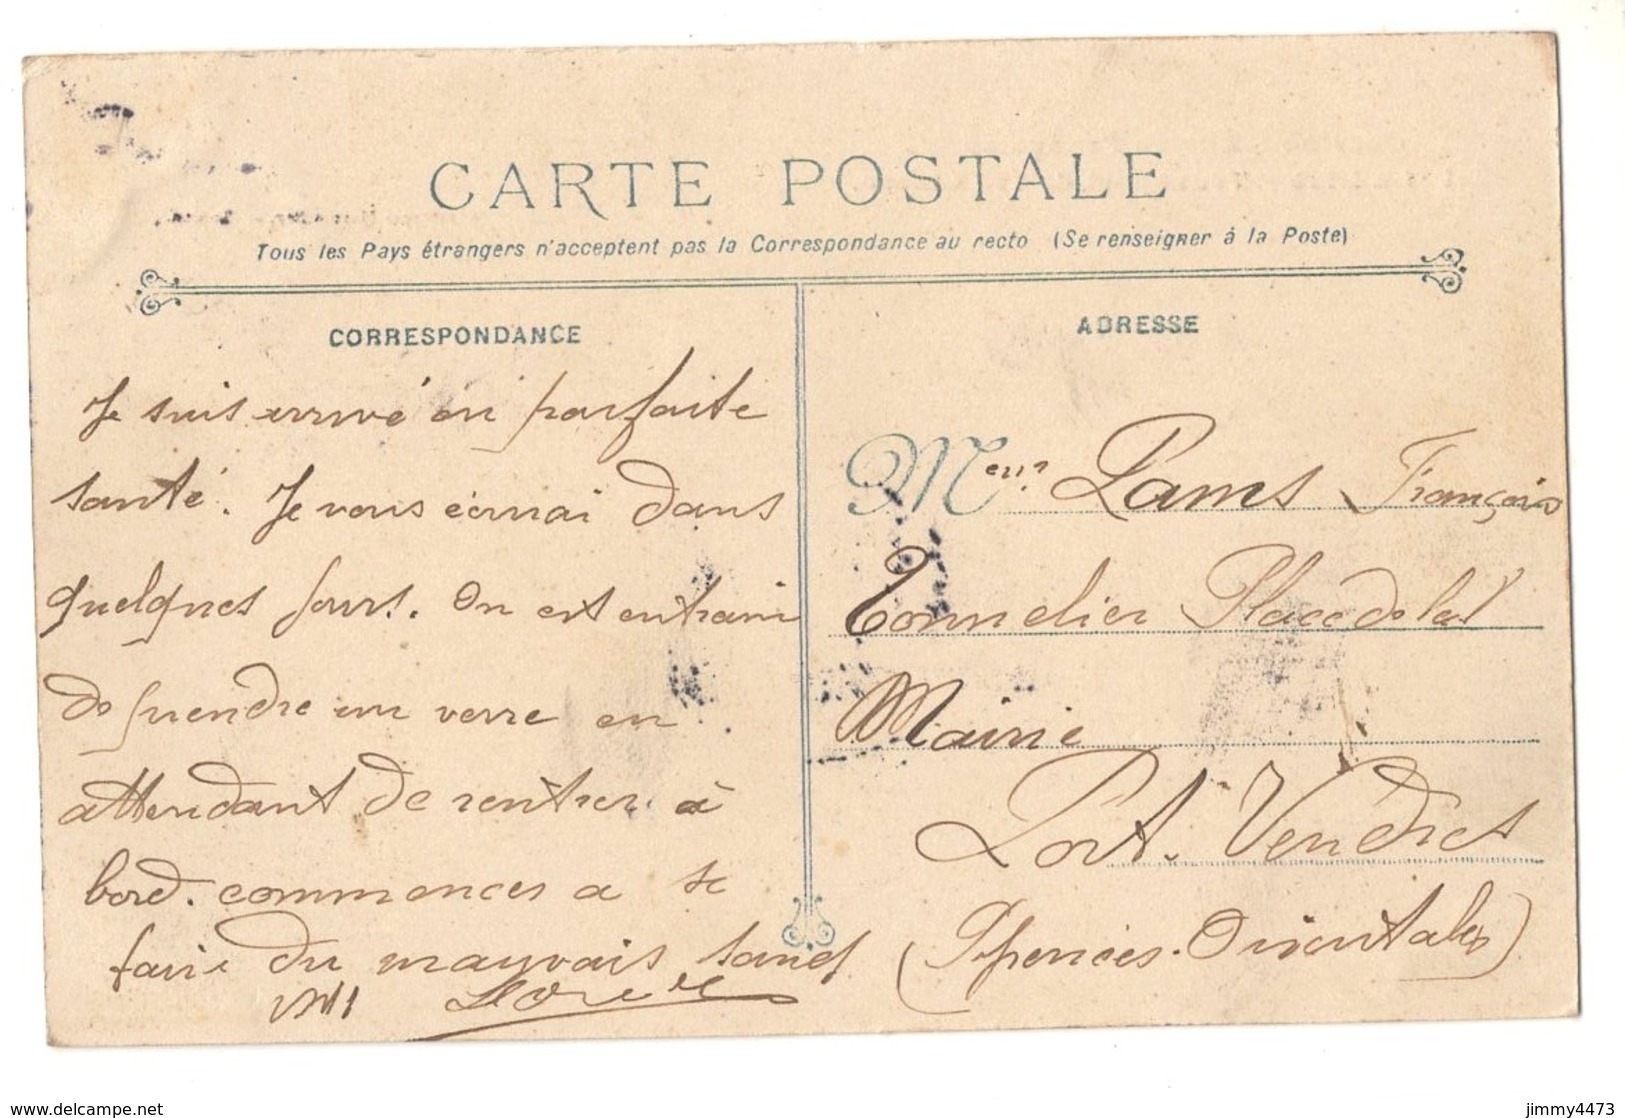 CARTE POSTALE
Tous les Pays étrangers n'acceptent pas la Correspondance au recto (Se renseigner à la Poste)
CORRESPONDANCE
ADRESSE
Je suis arrivé en parfaite
santé. Je vous écrirai dans
quelques jours. On est entrain
de prendre un verre en
attendant de rentrer à
bord. commences a se
faire du mauvais sang
Meur Pams François
Tonnelier Place de la
Mairie
Port-Vendres
(Pyrenées-Orientales)
www.delcampe.net
jimmy4473